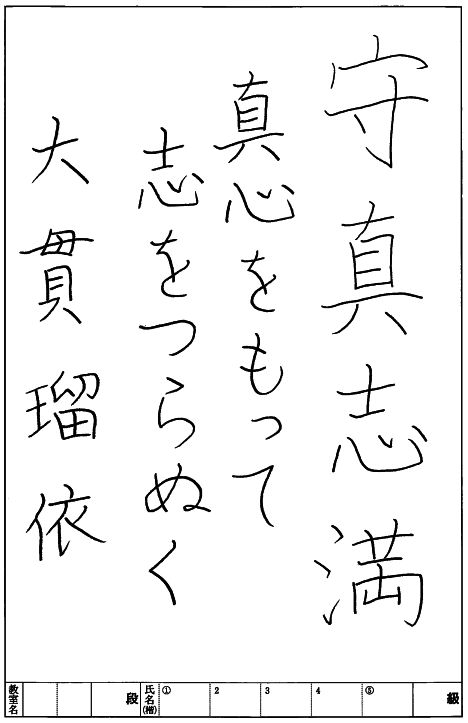 守真志満
真心をもって
志をつらぬく
大貫瑠依
級
⑤
4
3
2
①
氏名(楷)
段
教室名